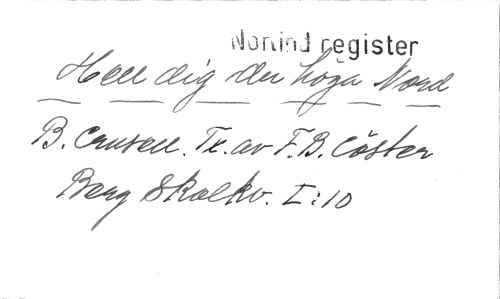 Nonind register
Hell dig du höga Nord
B. Crusell. Tx. av F.B. Cöster
Berg Skolkv. I:10